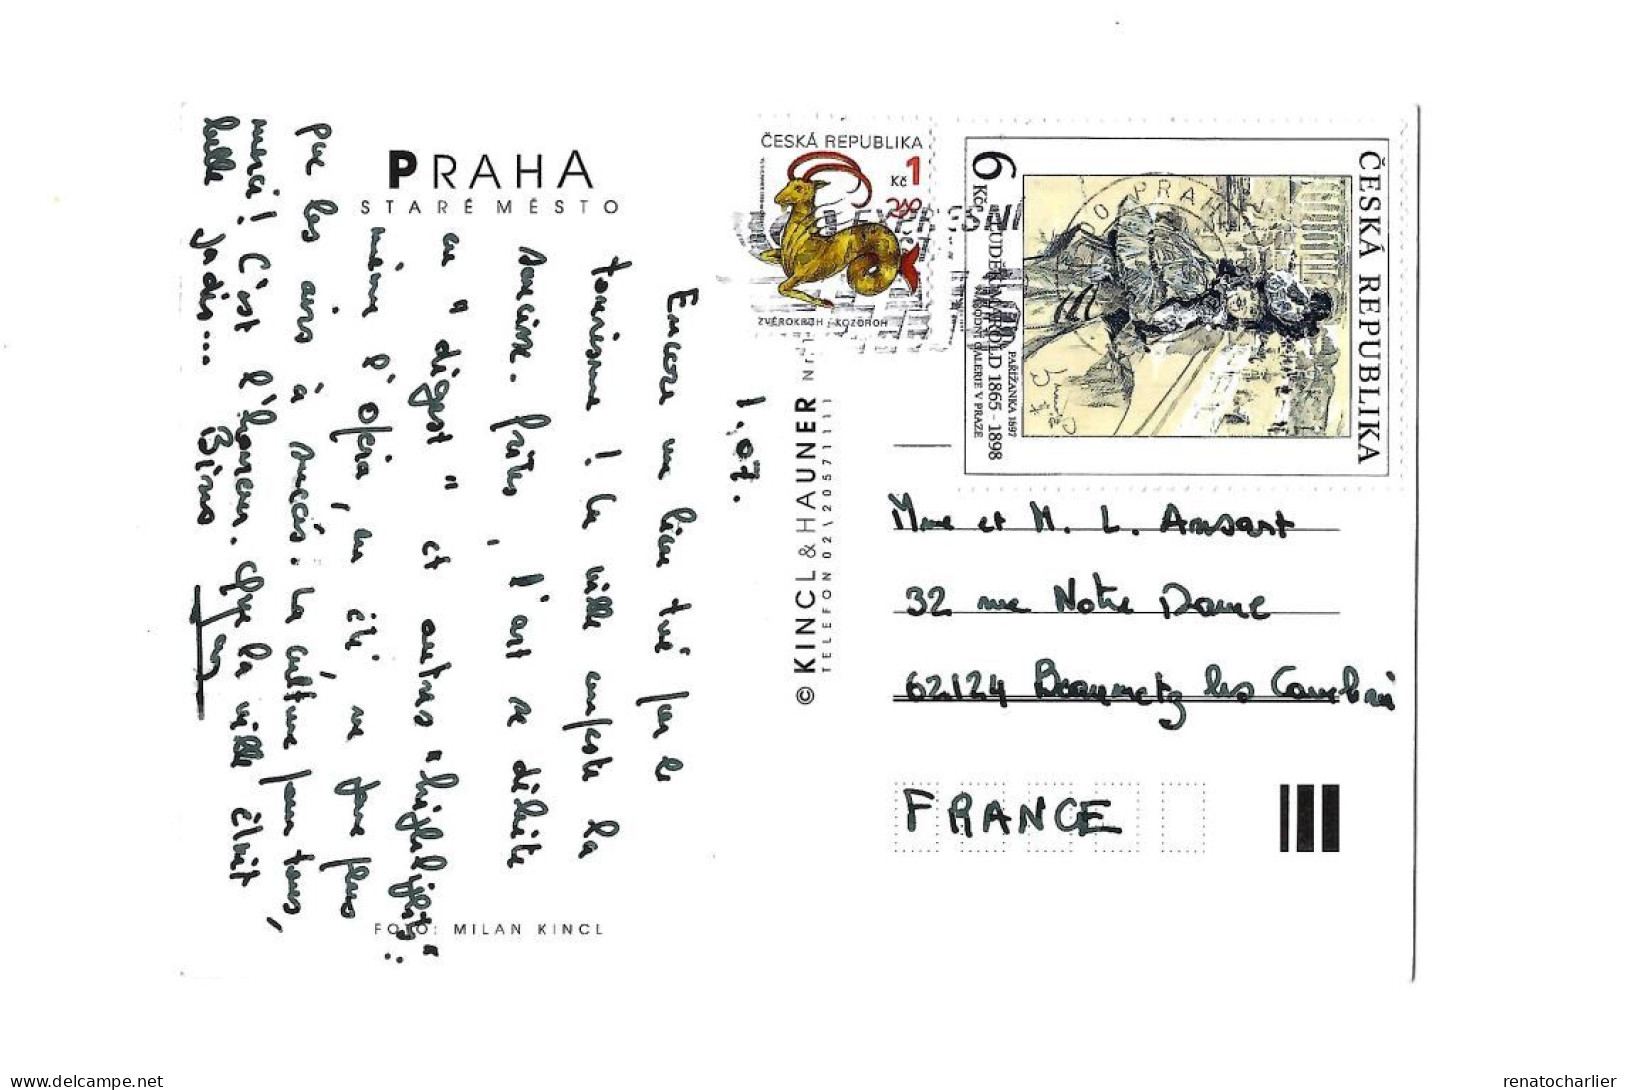 PRAHA
STARÉ MĚSTO
1.07.
Encore un lieu tué par le
tourisme ! La ville empeste la
saucisse. frites, l'art se délite
au "digest" et autres "highlights":
même l'opéra, en été ne joue plus
que les airs à succès. La culture pour tous,
merci ! C'est l'horreur. Que la ville était
belle jadis... Bises
FOTO: MILAN KINCL
© KINCL & HAUNER Nr.
TELEFON 02\20571111
ČESKÁ REPUBLIKA
1
Kč
ZVĚROKRUH - KOZOROH
PRAHA
ČESKÁ REPUBLIKA
6
Kčs
LUDĚK MAROLD 1865 - 1898
PAŘÍŽANKA 1897
NÁRODNÍ GALERIE V PRAZE
Mme et M. L. Ansart
32 rue Notre Dame
62124 Beaumetz les Cambrai
FRANCE
renatocharlier